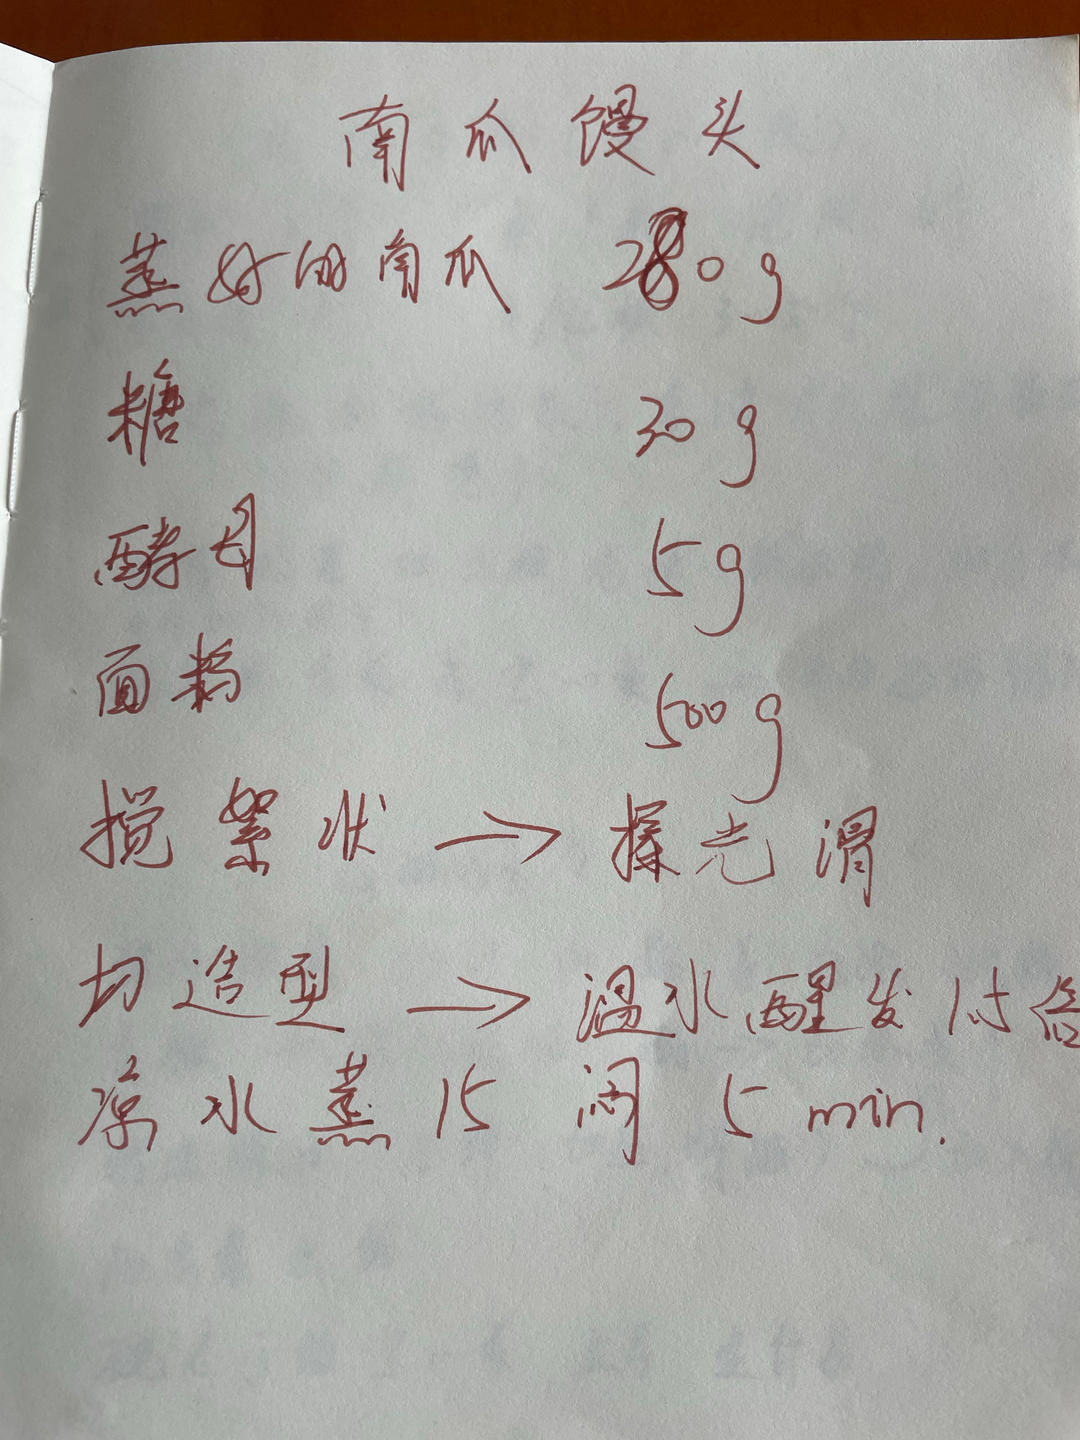 南瓜馒头
蒸好的南瓜 280g
糖 30g
酵母 5g
面粉 500g
搅絮状 → 揉光滑
切造型 → 温水醒发1.5倍
凉水蒸 15 闷 5 min.